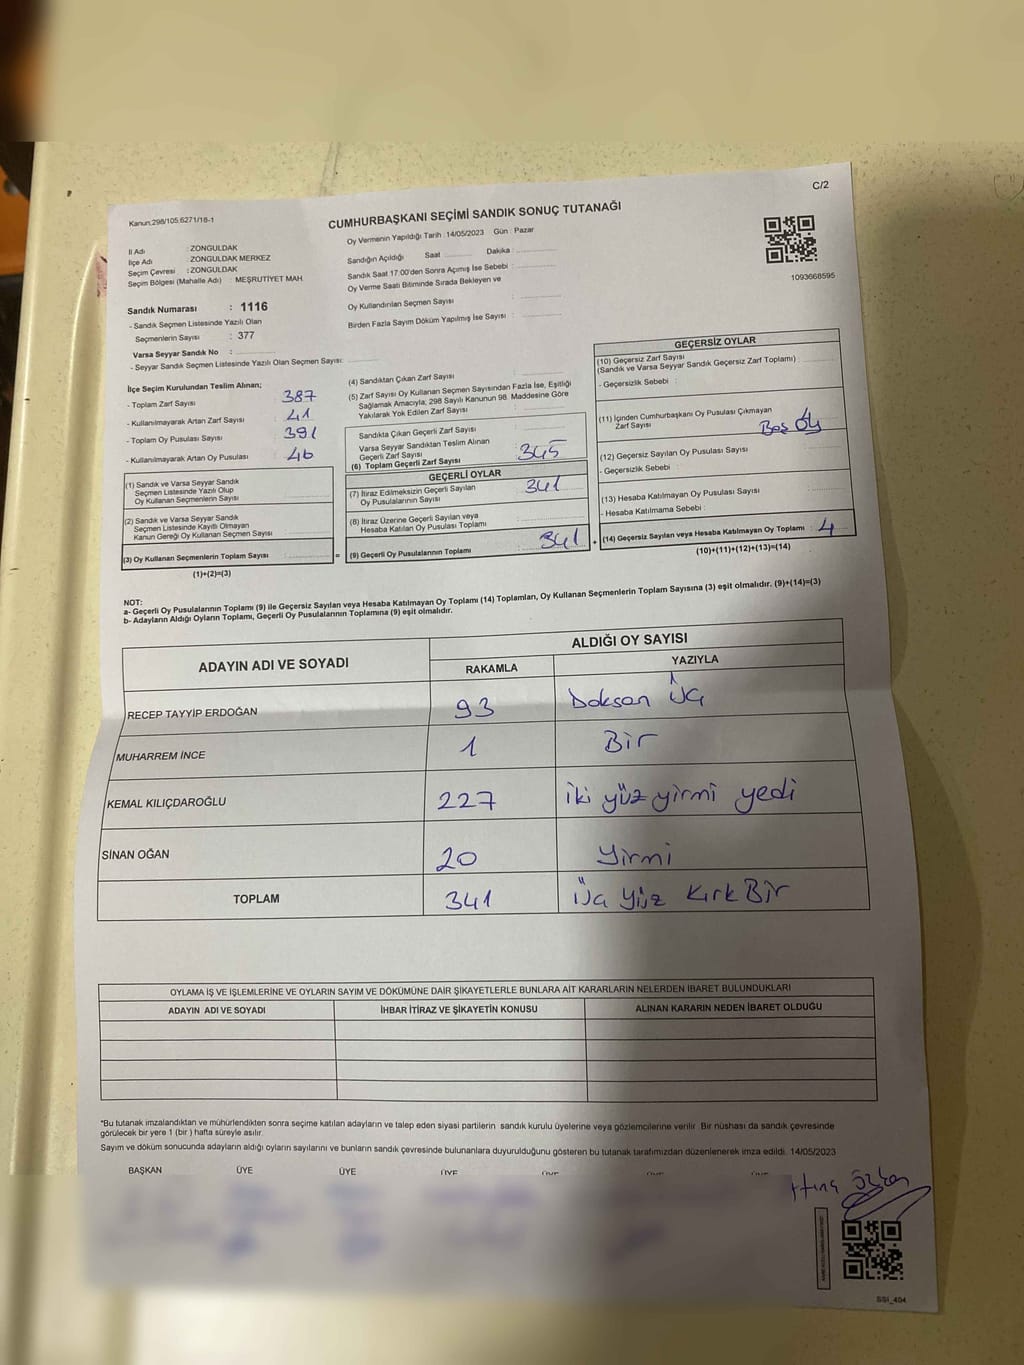 C/2
Kanun:298/105:6271/18-1
CUMHURBAŞKANI SEÇİMİ SANDIK SONUÇ TUTANAĞI
İl Adı : ZONGULDAK
İlçe Adı : ZONGULDAK MERKEZ
Seçim Çevresi : ZONGULDAK
Seçim Bölgesi (Mahalle Adı) : MEŞRUTİYET MAH.
Sandık Numarası : 1116
- Sandık Seçmen Listesinde Yazılı Olan
Seçmenlerin Sayısı : 377
Varsa Seyyar Sandık No :
- Seyyar Sandık Seçmen Listesinde Yazılı Olan Seçmen Sayısı:
Oy Vermenin Yapıldığı Tarih :14/05/2023 Gün : Pazar
Sandığın Açıldığı Saat Dakika :
Sandık Saat 17:00'den Sonra Açımış İse Sebebi :
Oy Verme Saati Bitiminde Sırada Bekleyen ve
Oy Kullandırılan Seçmen Sayısı :
Birden Fazla Sayım Döküm Yapılmış İse Sayısı :
1093668595
İlçe Seçim Kurulundan Teslim Alınan;
- Toplam Zarf Sayısı : 387
- Kullanılmayarak Artan Zarf Sayısı : 41
- Toplam Oy Pusulası Sayısı : 391
- Kullanılmayarak Artan Oy Pusulası : 46
(1) Sandık ve Varsa Seyyar Sandık
Seçmen Listesinde Yazılı Olup
Oy Kullanan Seçmenlerin Sayısı :
(2) Sandık ve Varsa Seyyar Sandık
Seçmen Listesinde Kayıtlı Olmayan
Kanun Gereği Oy Kullanan Seçmen Sayısı :
(3) Oy Kullanan Seçmenlerin Toplam Sayısı : =
(1)+(2)=(3)
(4) Sandıktan Çıkan Zarf Sayısı :
(5) Zarf Sayısı Oy Kullanan Seçmen Sayısından Fazla İse, Eşitliği
Sağlamak Amacıyla, 298 Sayılı Kanunun 98. Maddesine Göre
Yakılarak Yok Edilen Zarf Sayısı :
Sandıkta Çıkan Geçerli Zarf Sayısı :
Varsa Seyyar Sandıktan Teslim Alınan
Geçerli Zarf Sayısı :
(6) Toplam Geçerli Zarf Sayısı : 345
GEÇERLİ OYLAR
(7) İtiraz Edilmeksizin Geçerli Sayılan
Oy Pusulalarının Sayısı : 341
(8) İtiraz Üzerine Geçerli Sayılan veya
Hesaba Katılan Oy Pusulası Toplamı :
(9) Geçerli Oy Pusulalarının Toplamı : 341 +
GEÇERSİZ OYLAR
(10) Geçersiz Zarf Sayısı
(Sandık ve Varsa Seyyar Sandık Geçersiz Zarf Toplamı) :
- Geçersizlik Sebebi :
(11) İçinden Cumhurbaşkanı Oy Pusulası Çıkmayan
Zarf Sayısı : Boş Oy
(12) Geçersiz Sayılan Oy Pusulası Sayısı :
- Geçersizlik Sebebi :
(13) Hesaba Katılmayan Oy Pusulası Sayısı :
- Hesaba Katılmama Sebebi :
(14) Geçersiz Sayılan veya Hesaba Katılmayan Oy Toplamı : 4
(10)+(11)+(12)+(13)=(14)
NOT:
a- Geçerli Oy Pusulalarının Toplamı (9) ile Geçersiz Sayılan veya Hesaba Katılmayan Oy Toplamı (14) Toplamları, Oy Kullanan Seçmenlerin Toplam Sayısına (3) eşit olmalıdır. (9)+(14)=(3)
b- Adayların Aldığı Oyların Toplamı, Geçerli Oy Pusulalarının Toplamına (9) eşit olmalıdır.
ADAYIN ADI VE SOYADI ALDIĞI OY SAYISI
RAKAMLA YAZIYLA
RECEP TAYYİP ERDOĞAN 93 Doksan Üç
MUHARREM İNCE 1 Bir
KEMAL KILIÇDAROĞLU 227 iki yüz yirmi yedi
SİNAN OĞAN 20 Yirmi
TOPLAM 341 Üç Yüz Kırk Bir
OYLAMA İŞ VE İŞLEMLERİNE VE OYLARIN SAYIM VE DÖKÜMÜNE DAİR ŞİKAYETLERLE BUNLARA AİT KARARLARIN NELERDEN İBARET BULUNDUKLARI
ADAYIN ADI VE SOYADI İHBAR İTİRAZ VE ŞİKAYETİN KONUSU ALINAN KARARIN NEDEN İBARET OLDUĞU
*Bu tutanak imzalandıktan ve mühürlendikten sonra seçime katılan adayların ve talep eden siyasi partilerin sandık kurulu üyelerine veya gözlemcilerine verilir. Bir nüshası da sandık çevresinde
görülecek bir yere 1 (bir) hafta süreyle asılır.
Sayım ve döküm sonucunda adayların aldığı oyların sayılarını ve bunların sandık çevresinde bulunanlara duyurulduğunu gösteren bu tutanak tarafımızdan düzenlenerek imza edildi. 14/05/2023
BAŞKAN ÜYE ÜYE ÜYE
SSI_404